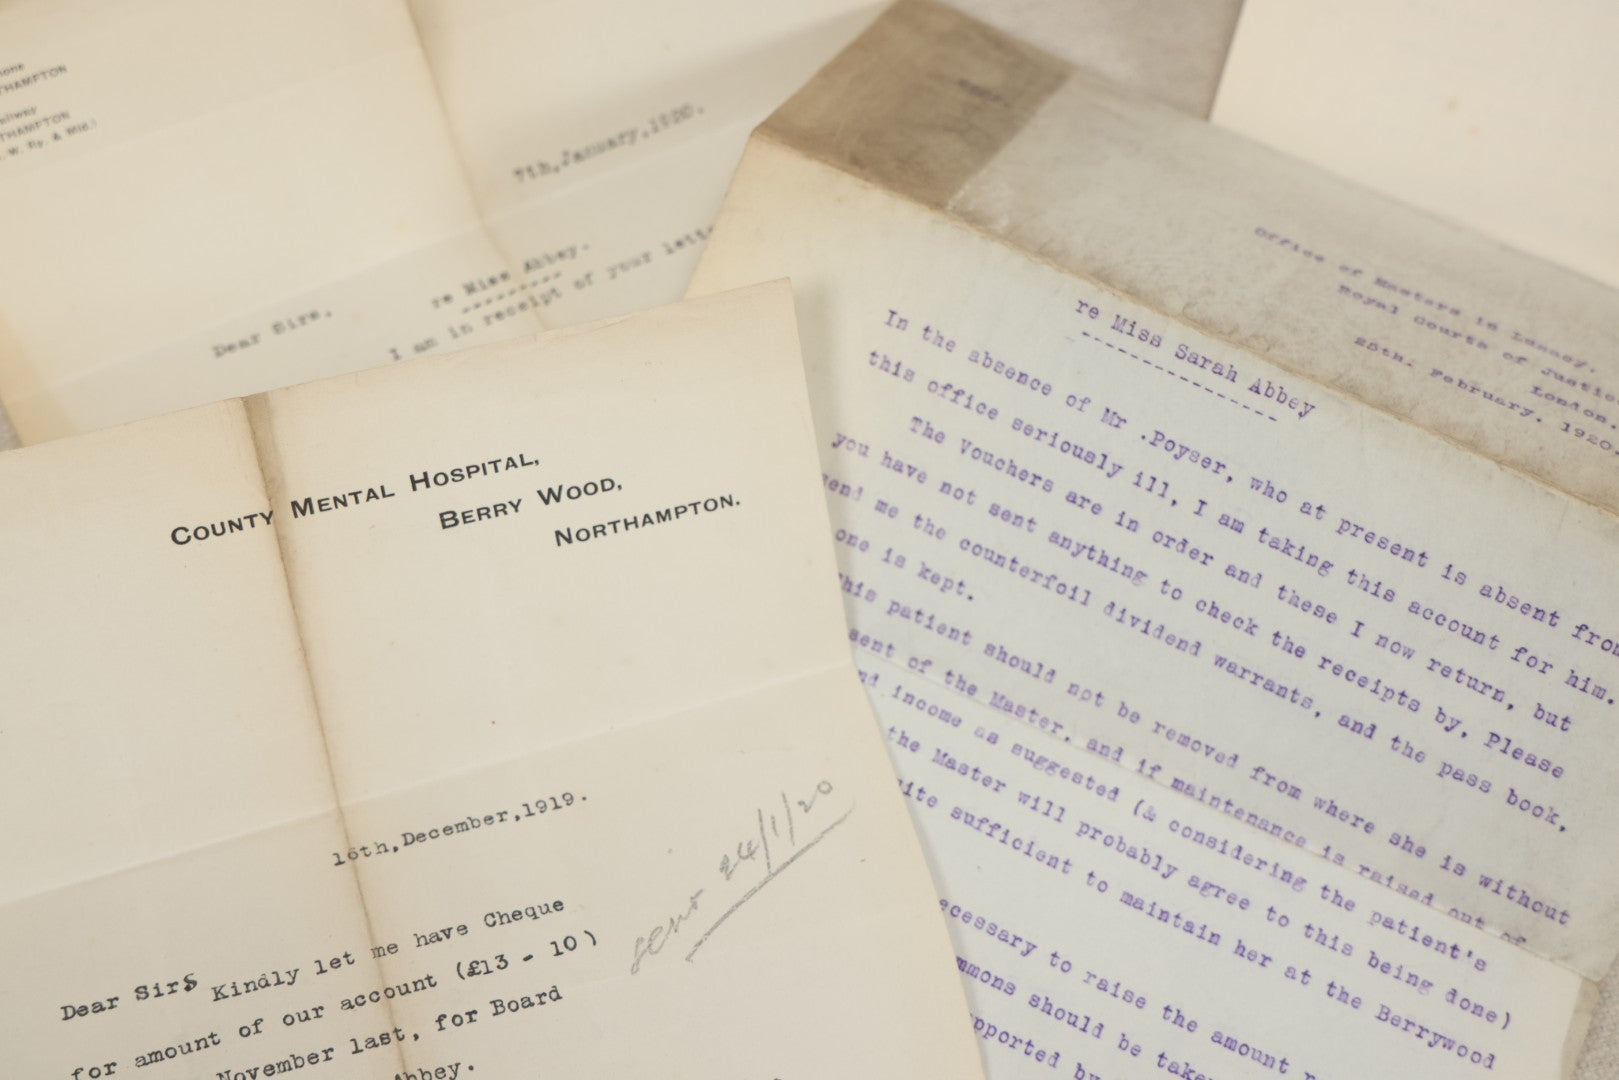 THAMPTON
THAMPTON
. W. Ry. & Mid.)
7th,January,1920.
re Miss Abbey.
Dear Sirs,
I am in receipt of your
COUNTY MENTAL HOSPITAL,
BERRY WOOD,
NORTHAMPTON.
16th,December,1919.
sent 24/1/20
Dear Sirs
Kindly let me have Cheque
for amount of our account (£13 - 10)
November last, for Board
Abbey.
Office of Masters in Lunacy.
Royal Courts of Justice
London.
25th. February. 1920.
re Miss Sarah Abbey
In the absence of Mr .Poyser, who at present is absent from
this office seriously ill, I am taking this account for him.
The Vouchers are in order and these I now return, but
you have not sent anything to check the receipts by. Please
send me the counterfoil dividend warrants, and the pass book,
one is kept.
this patient should not be removed from where she is without
sent of the Master. and if maintenance is raised out of
nd income as suggested (& considering the patient's
the Master will probably agree to this being done)
uite sufficient to maintain her at the Berrywood
ecessary to raise the amount
mmons should be taken
pported by